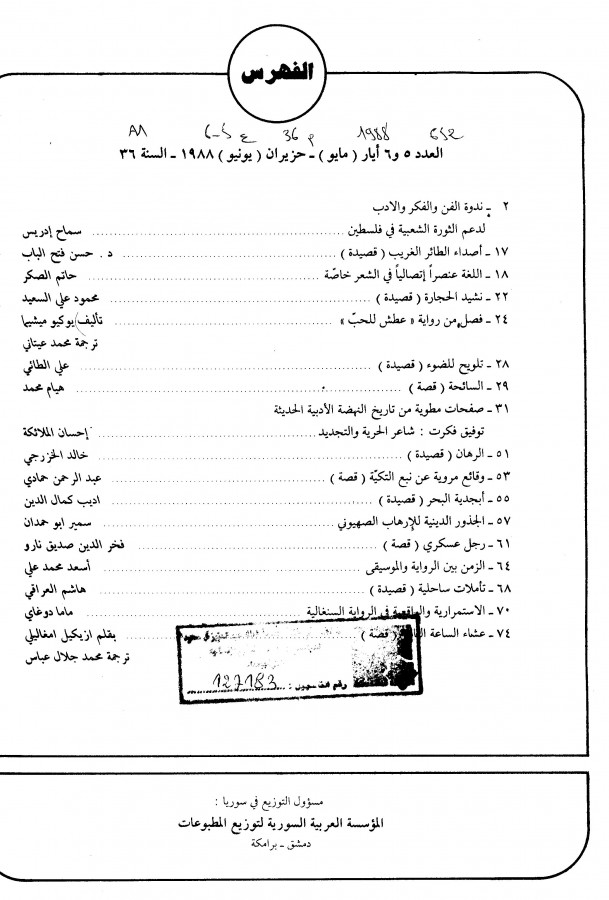 الفهرس
652 1988 م 36 ع 5-6 A1
العدد ٥ و٦ أيار ( مايو ) ـ حزيران ( يونيو ) ١٩٨٨ ـ السنة ٣٦
٢ ـ ندوة الفن والفكر والادب
لدعم الثورة الشعبية في فلسطين ........ سماح إدريس
١٧ ـ أصداء الطائر الغريب ( قصيدة ) ........ د . حسن فتح الباب
١٨ ـ اللغة عنصراً إتصالياً في الشعر خاصّة ........ حاتم الصكر
٢٢ ـ نشيد الحجارة ( قصيدة ) ........ محمود علي السعيد
٢٤ ـ فصل من رواية « عطش للحبّ » ........ تأليف يوكيو ميشيما
ترجمة محمد عيتاني
٢٨ ـ تلويح للضوء ( قصيدة ) ........ علي الطائي
٢٩ ـ السائحة ( قصة ) ........ هيام محمد
٣١ ـ صفحات مطوية من تاريخ النهضة الأدبية الحديثة
توفيق فكرت : شاعر الحرية والتجديد ........ إحسان الملائكة
٥١ ـ الرهان ( قصيدة ) ........ خالد الخزرجي
٥٣ ـ وقائع مروية عن نبع التكيّة ( قصة ) ........ عبد الرحمن حمادي
٥٥ ـ أبجدية البحر ( قصيدة ) ........ اديب كمال الدين
٥٧ ـ الجذور الدينية للإرهاب الصهيوني ........ سمير ابو حمدان
٦١ ـ رجل عسكري ( قصة ) ........ فخر الدين صديق نارو
٦٤ ـ الزمن بين الرواية والموسيقى ........ أسعد محمد علي
٦٨ ـ تأملات ساحلية ( قصيدة ) ........ هاشم العراقي
٧٠ ـ الاستمرارية والواقعية في الرواية السنغالية ........ ماما دوغاي
٧٤ ـ عشاء الساعة ( قصة ) بقلم ازيكيل امغاليلي
ترجمة محمد جلال عباس
رقم التسجيل : 127183
مسؤول التوزيع في سوريا :
المؤسسة العربية السورية لتوزيع المطبوعات
دمشق ـ برامكة